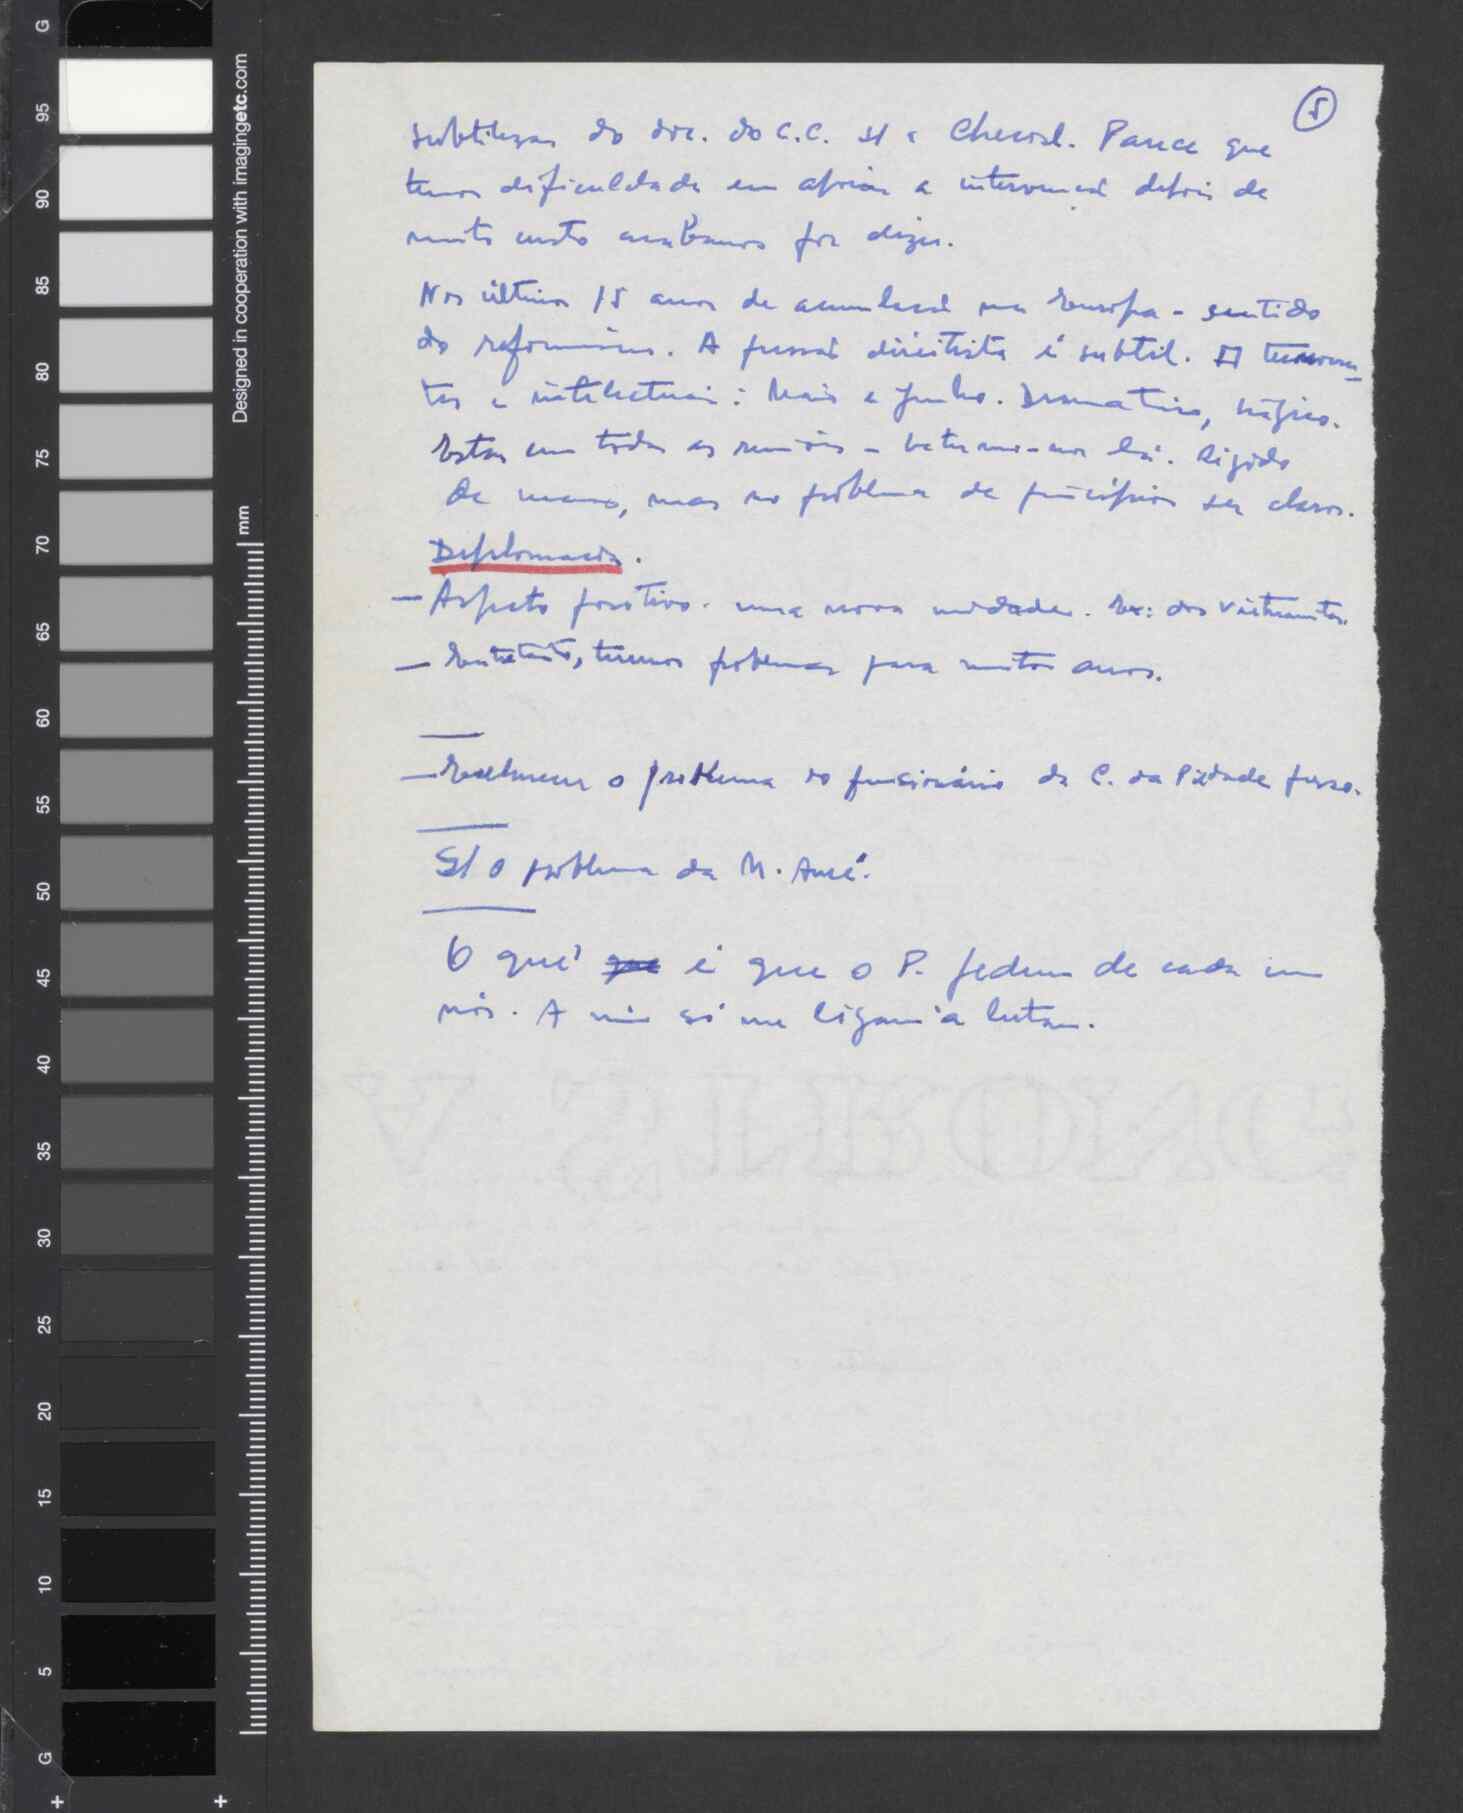 5
subtilezas do doc. do C.C. s/ a Checosl. Parece que
temos dificuldade em apoiar a intervenção depois de
muito custo acabamos por dizer.
Nos últimos 15 anos de acumulação na Europa - sentido
do reformismo. A pressão direitista é subtil.
tes e intelectuais: Maio e Junho. Dramático, trágico.
Estar em todas as reuniões - batermo-nos lá. Rígido
de, mas no problema de princípios ser claros.
Diplomacia.
— Aspecto positivo. uma nova unidade. Ex: dos Vietnamitas.
— Entretanto, temos problemas para muitos anos.
— o problema do funcionário da C. da Piedade
S/ o problema da M.
O que que é que o P. pediu de cada um
nós. A mim só me ligam a lutar.
Designed in cooperation with imagingetc.com
mm
G
95
90
85
80
75
70
65
60
55
50
45
40
35
30
25
20
15
10
5
G